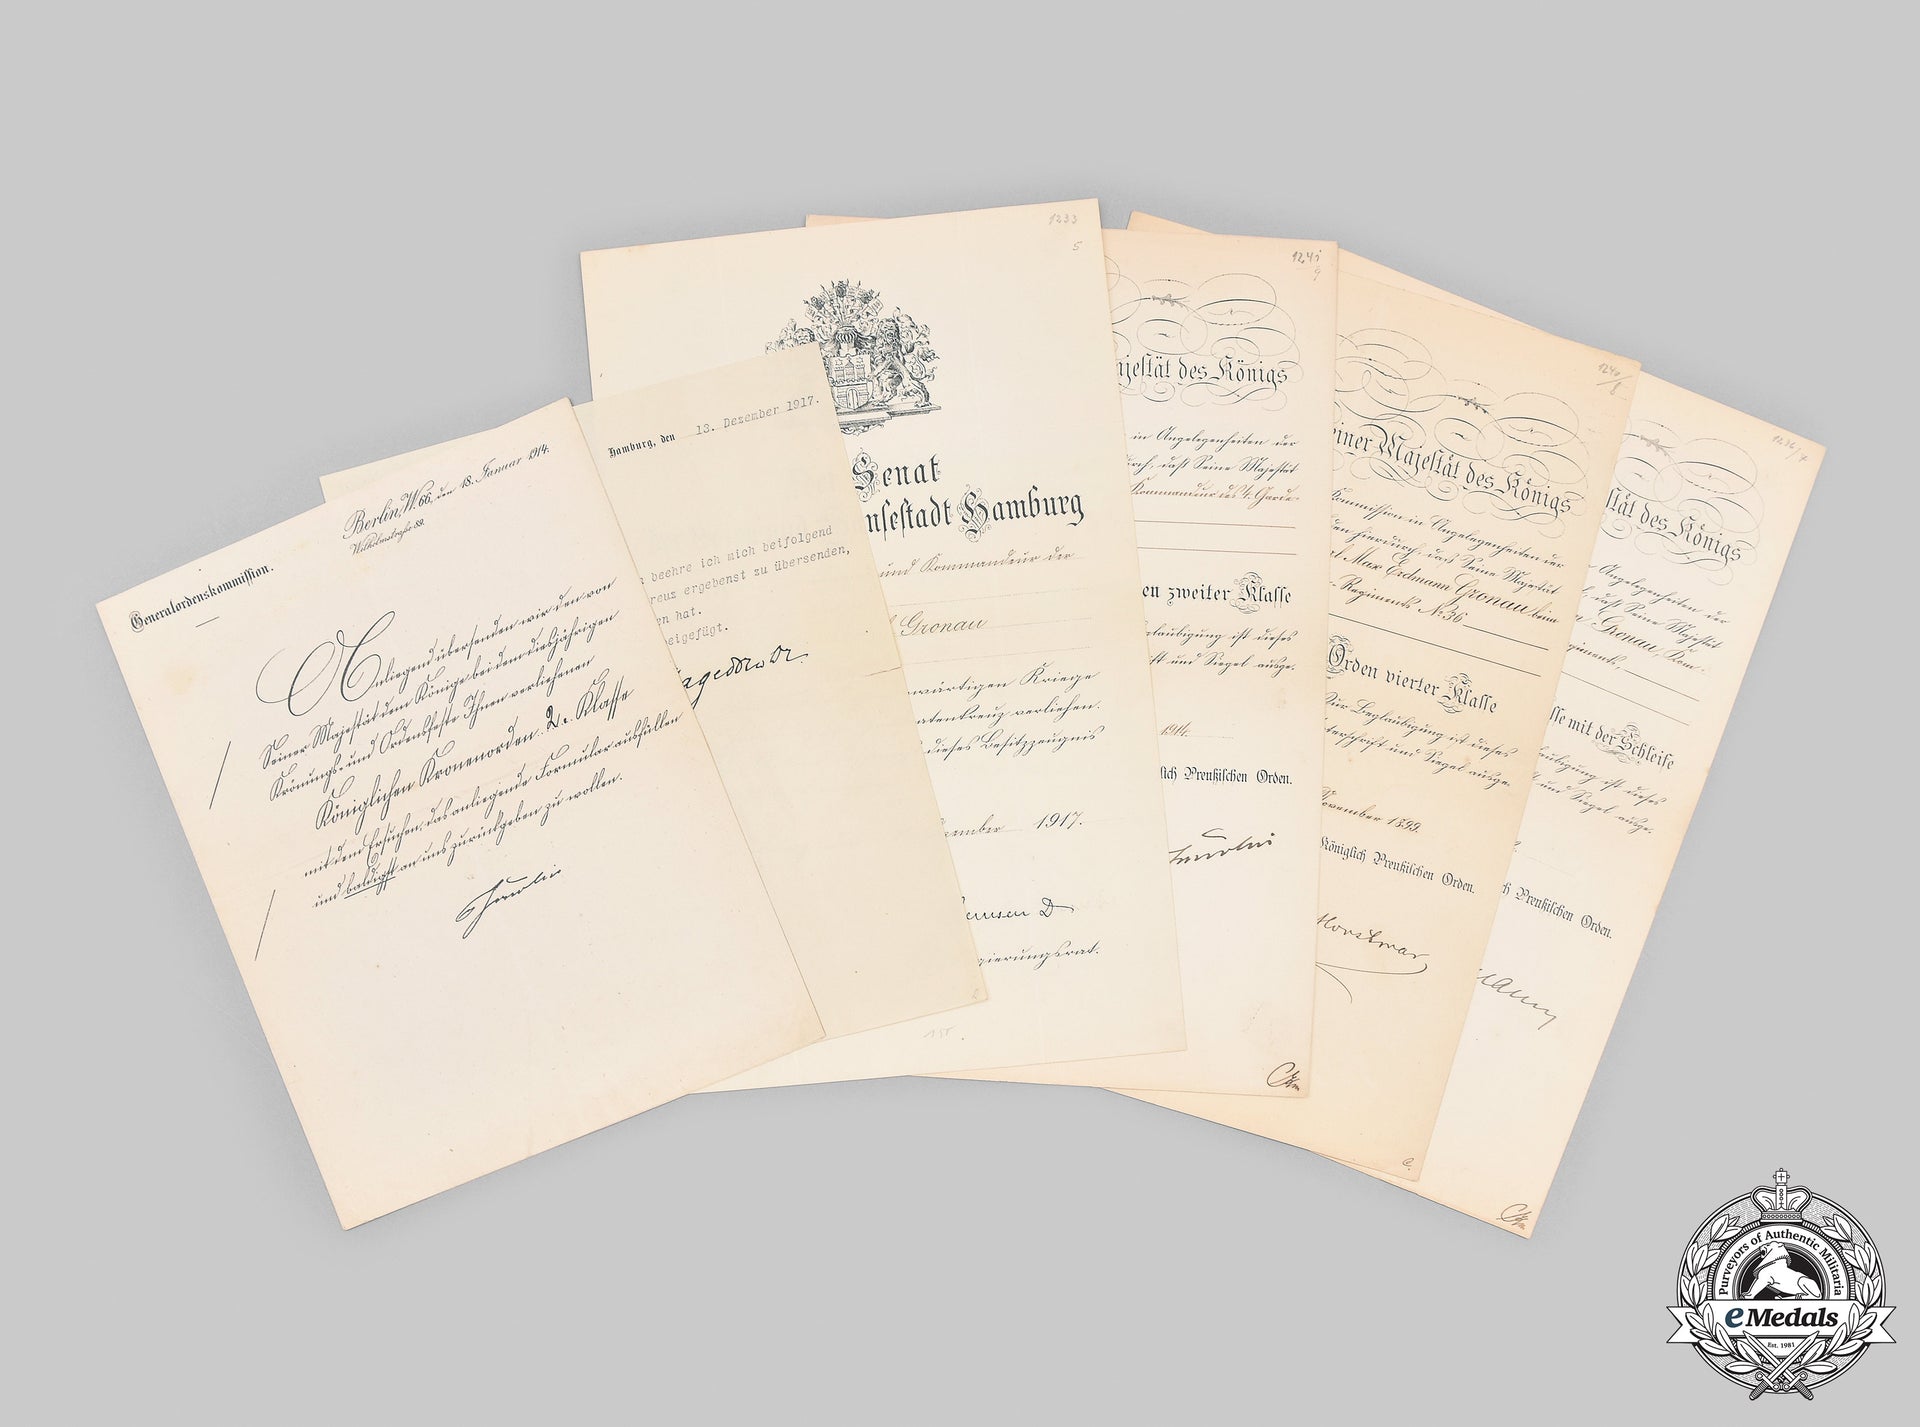 Generalordenskommission.
Berlin, W. 66, den 18. Januar 1914.
Wilhelmstraße 88.
Anliegend übersenden wir den von
Seiner Majestät dem Könige bei dem diesjährigen
Krönungs- und Ordensfeste Ihnen verliehenen
Königlichen Kronenorden 2r. Klasse
mit dem Ersuchen, das anliegende Formular ausfüllen
und baldigst an uns zurückgeben zu wollen.
Hamburg, den 13. Dezember 1917.
beehre ich mich beifolgend
reuz ergebenst zu übersenden,
en hat.
eigefügt.
1233
5
Senat
nsestadt Hamburg
und Kommandeur der
Gronau
wärtigen Kriege
atenkreuz verliehen.
dieses Besitzzeugnis
ember 1917.
gierungsrat.
1241
9
ajestät des Königs
in Angelegenheiten der
urch, daß Seine Majestät
Kommandeur des 4. Garde-
en zweiter Klasse
glaubigung ist dieses
ift und Siegel ausge-
1914.
lich Preußischen Orden.
1240
8
einer Majestät des Königs
Kommission in Angelegenheiten der
den hierdurch, daß Seine Majestät
Max Erdmann Gronau beim
-Regiments No. 36
Orden vierter Klasse
Zur Beglaubigung ist dieses
terschrift und Siegel ausge-
ovember 1899.
Königlich Preußischen Orden.
stät des Königs
Angelegenheiten der
daß Seine Majestät
Gronau, Kom-
giments,
sse mit der Schleife
laubigung ist dieses
und Siegel ausge-
ch Preußischen Orden.
Purveyors of Authentic Militaria
eMedals
Est. 1981